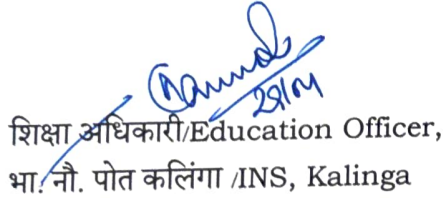 शिक्षा अधिकारी/Education Officer,
भा. नौ. पोत कलिंगा /INS, Kalinga